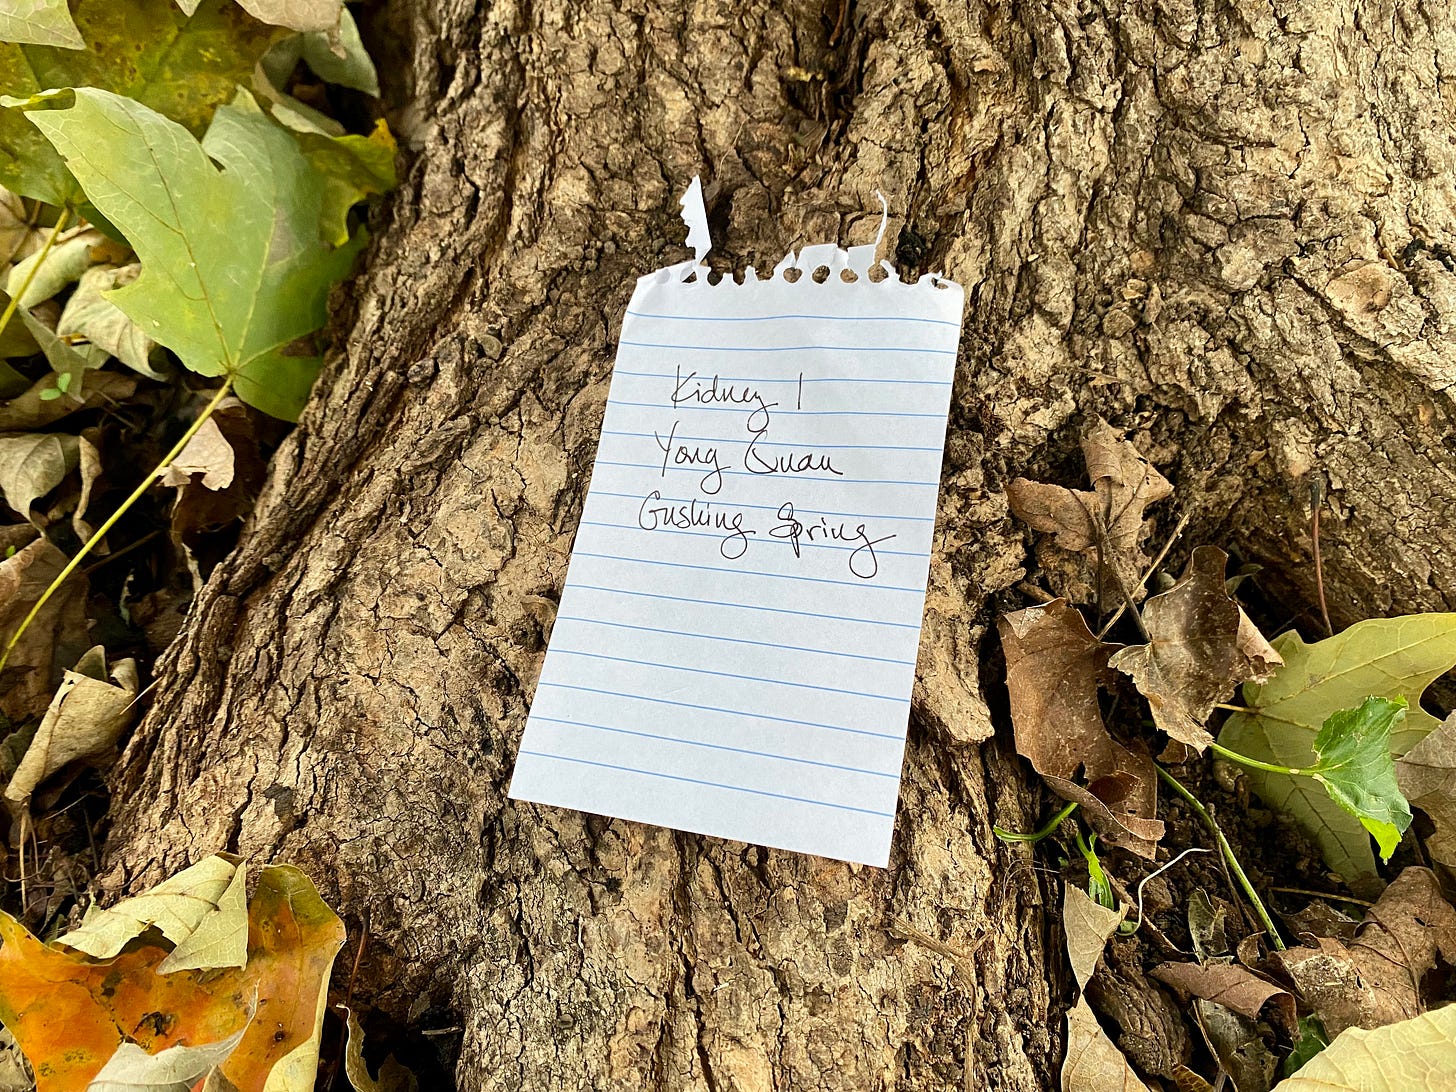 Kidney 1
Yong Quan
Gushing Spring